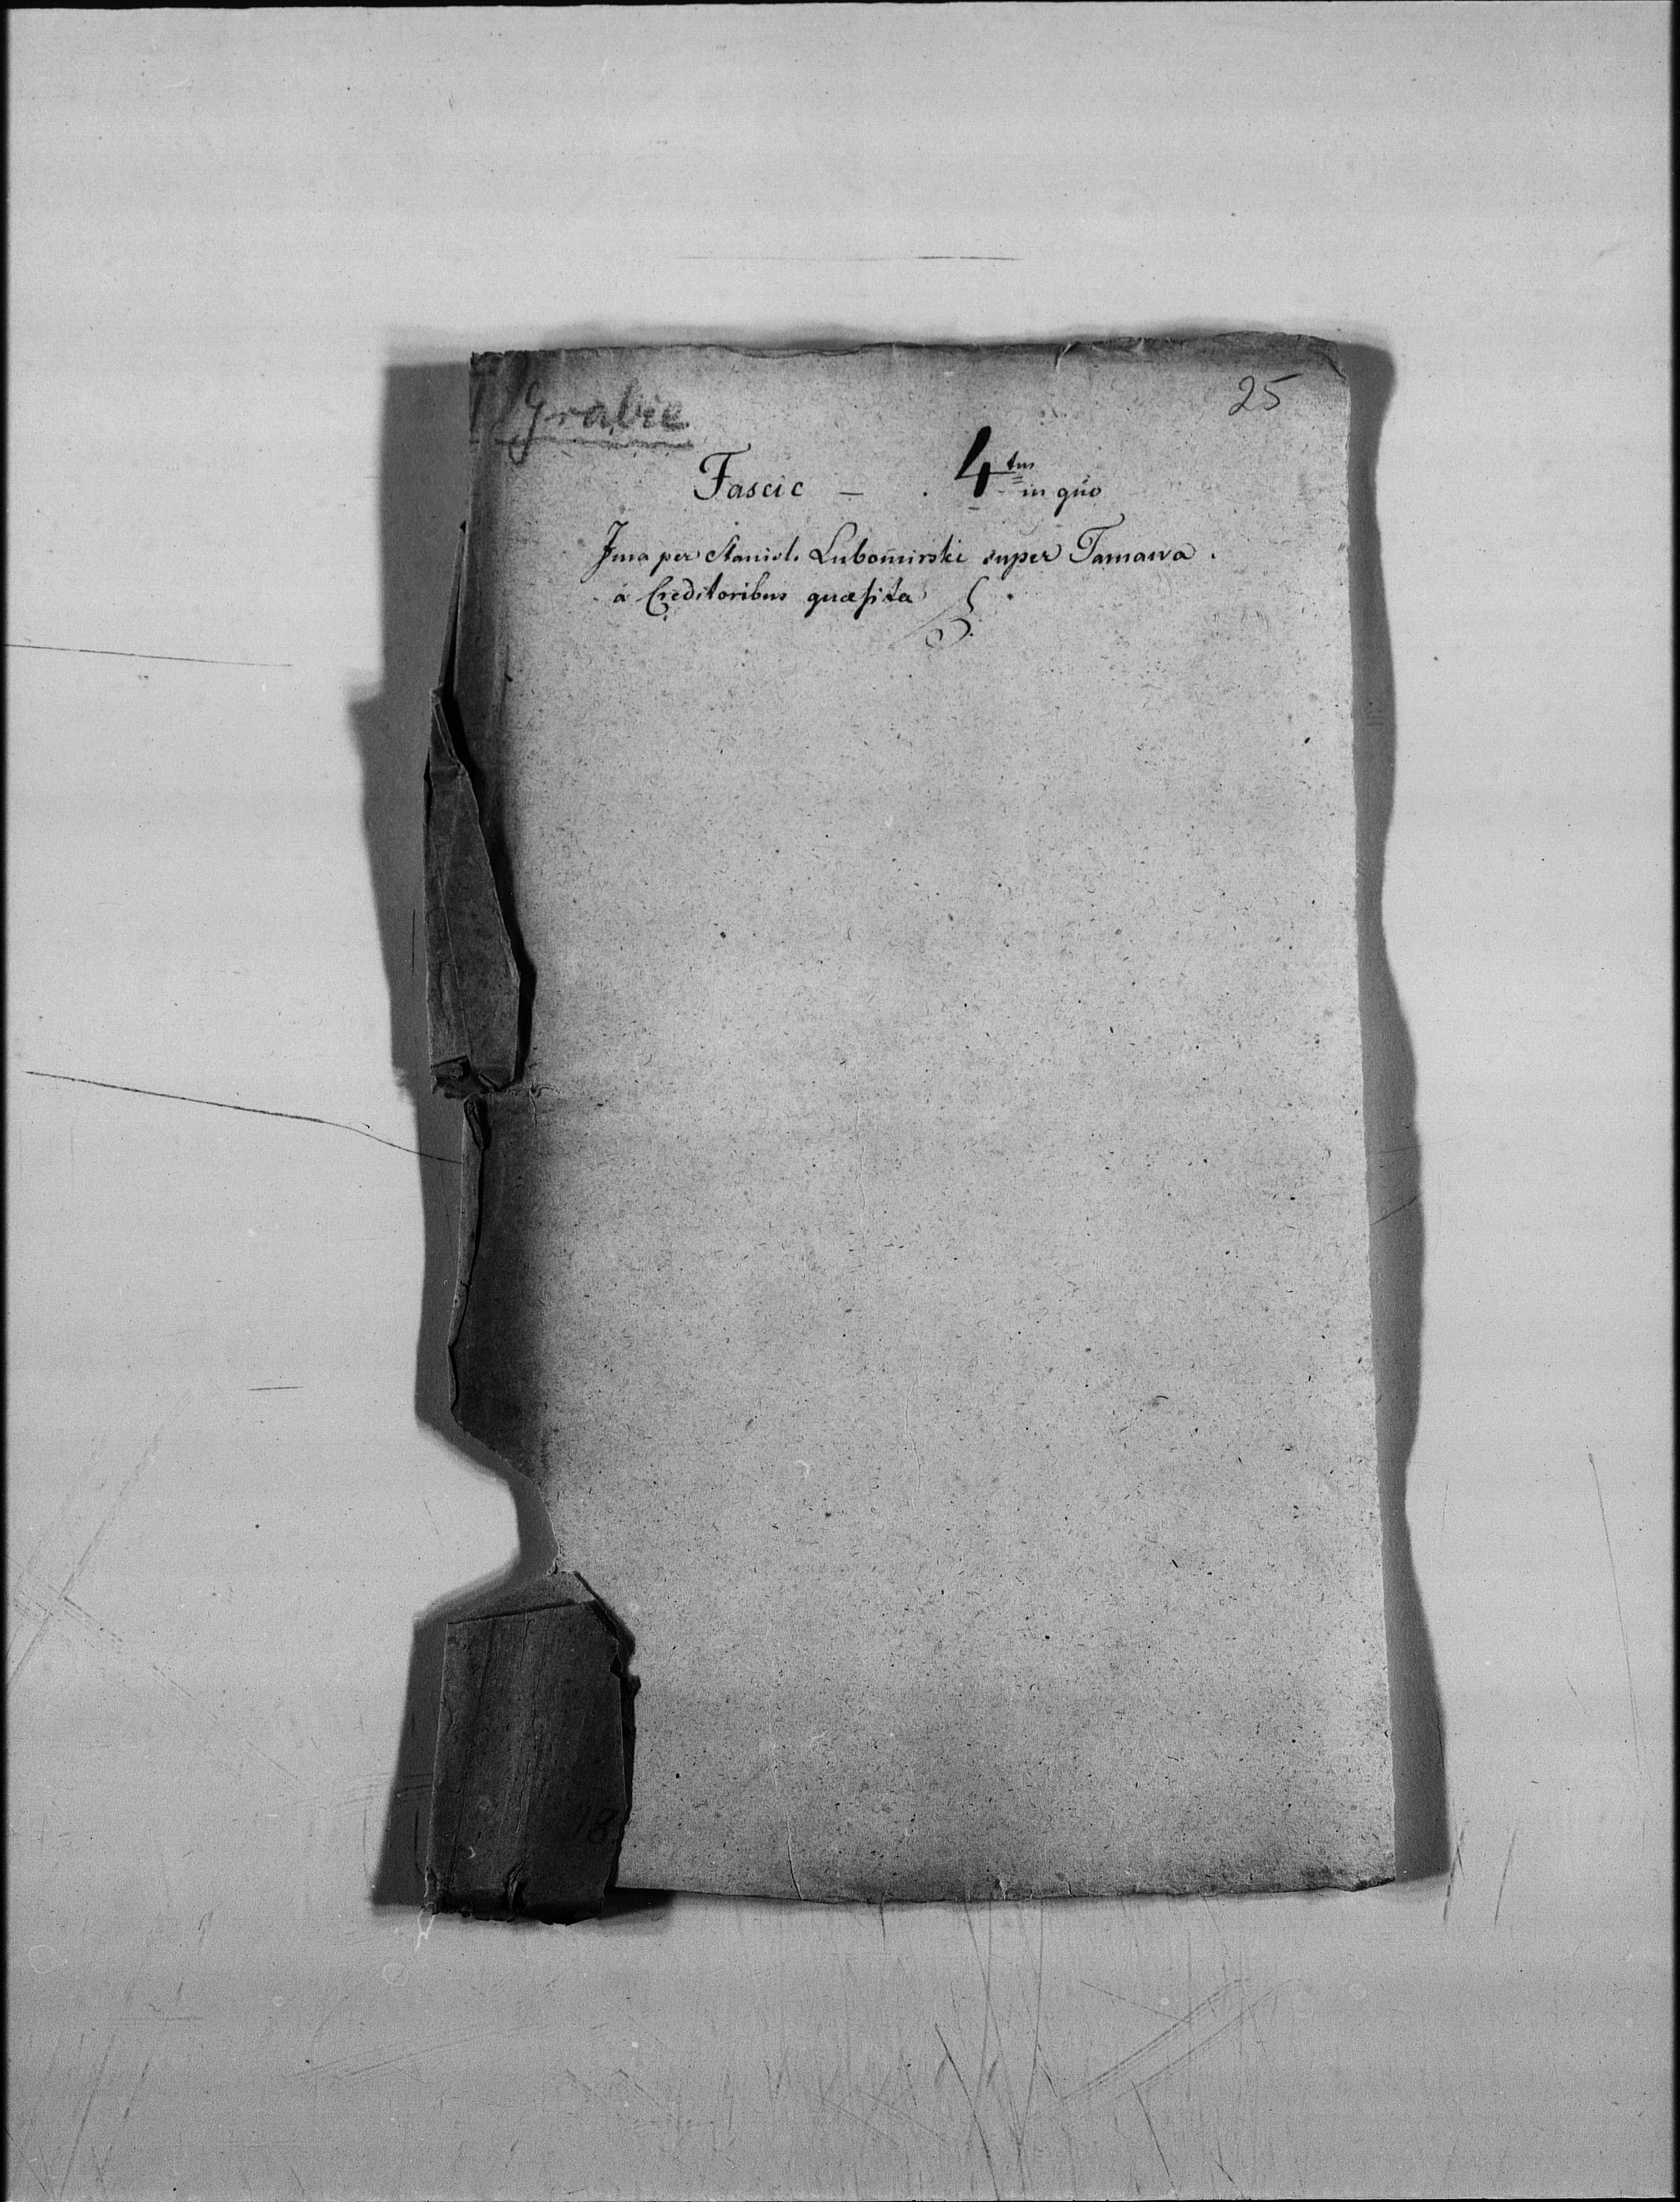 Grabie
25
Fascic — . 4tus in quo
Jura per Stanisl. Lubomirski super Tarnawa .
à Creditoribus quæsita
18